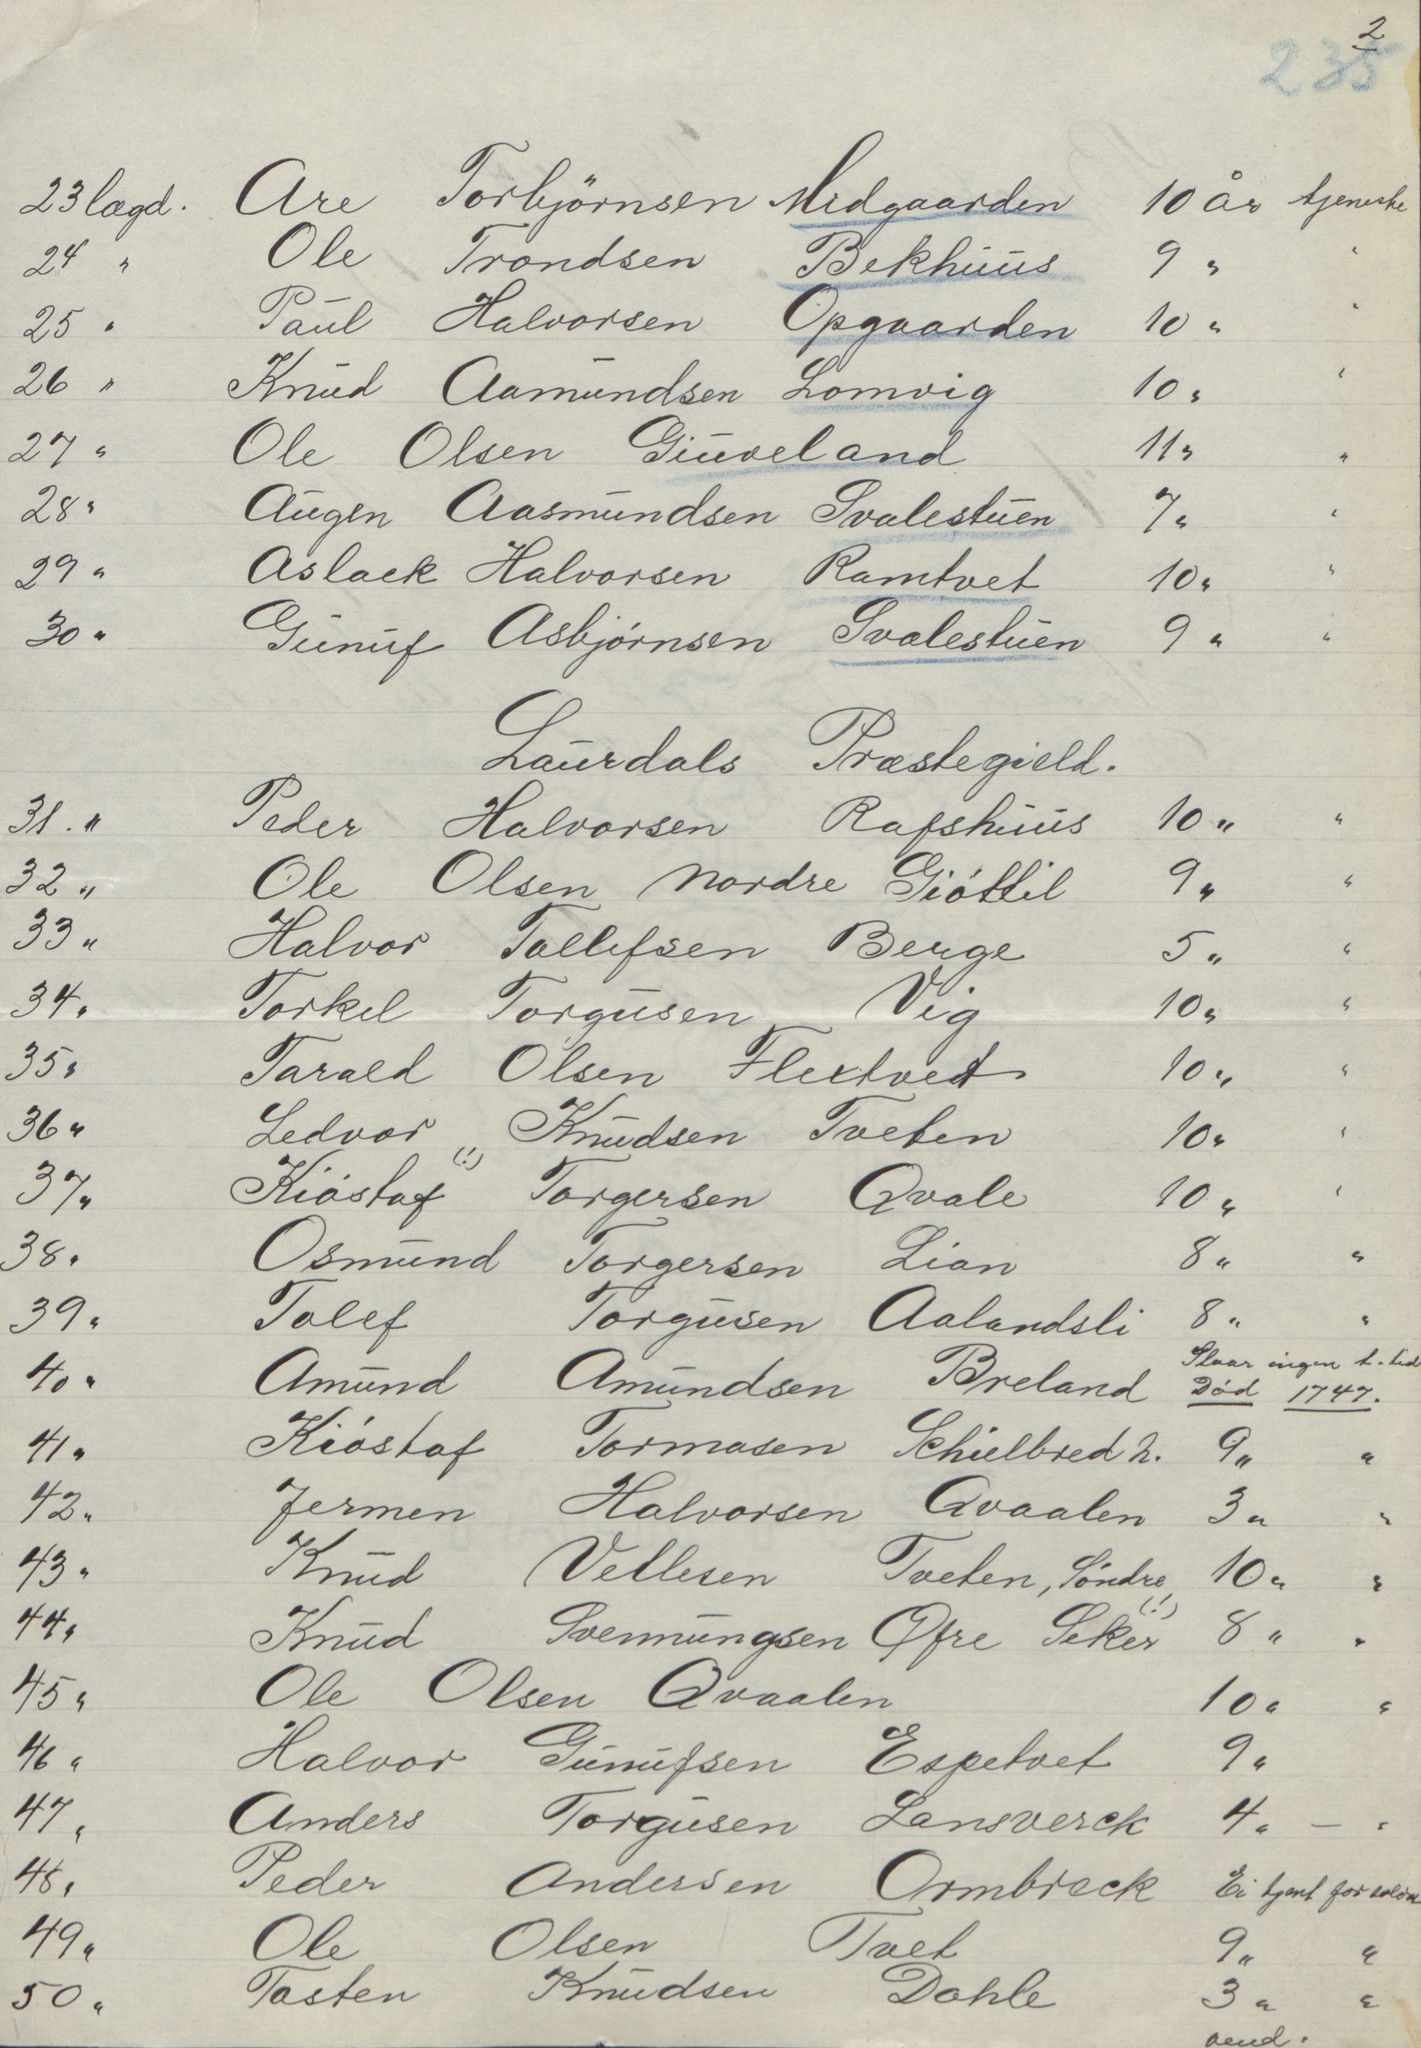 2
235
23 lægd. Are Torbjörnsen Midgaarden 10 år tjeneste
24 " Ole Trondsen Bekhuus 9 " "
25 " Paul Halvorsen Opgaarden 10 " "
26 " Knud Aamundsen Lomvig 10 " "
27 " Ole Olsen Giuveland 11 " "
28 " Augen Aasmundsen Svalestuen 7 " "
29 " Aslack Halvorsen Ramtvet 10 " "
30 " Gunuf Asbjørnsen Svalestuen 9 " "
Laurdals Præstegield.
31. " Peder Halvorsen Rafshuus 10 " "
32 " Ole Olsen Nordre Gióttil 9 " "
33 " Halvor Tollefsen Berge 5 " "
34 " Torkel Torgusen Vig 10 " "
35 " Tarald Olsen Flextvedt 10 " "
36 " Ledvor Knudsen Tveten 10 " "
37 " Kióstaf (!) Torgersen Qvale 10 " "
38 " Osmund Torgersen Lian 8 " "
39 " Tolef Torgusen Aalandsli 8 " "
40 " Amund Amundsen Breland Staar ingen t. tid
Død 1747.
41 " Kióstaf Tormosen Schielbred n. 9 " "
42 " Jermen Halvorsen Qvaalen 3 " "
43 " Knud Vetlesen Tveten, Söndre, 10 " "
44 " Knud Svennungsen Øfre Seker (!) 8 " "
45 " Ole Olsen Qvaalen 10 " "
46 " Halvor Gunufsen Espetvet 9 "
47 " Anders Torgusen Lansverck 4 " — "
48 " Peder Andersen Ormbreck Ei tjent for
49 " Ole Olsen Tvet 9 " "
50 " Tosten Knudsen Dahle 3 " "
vend.